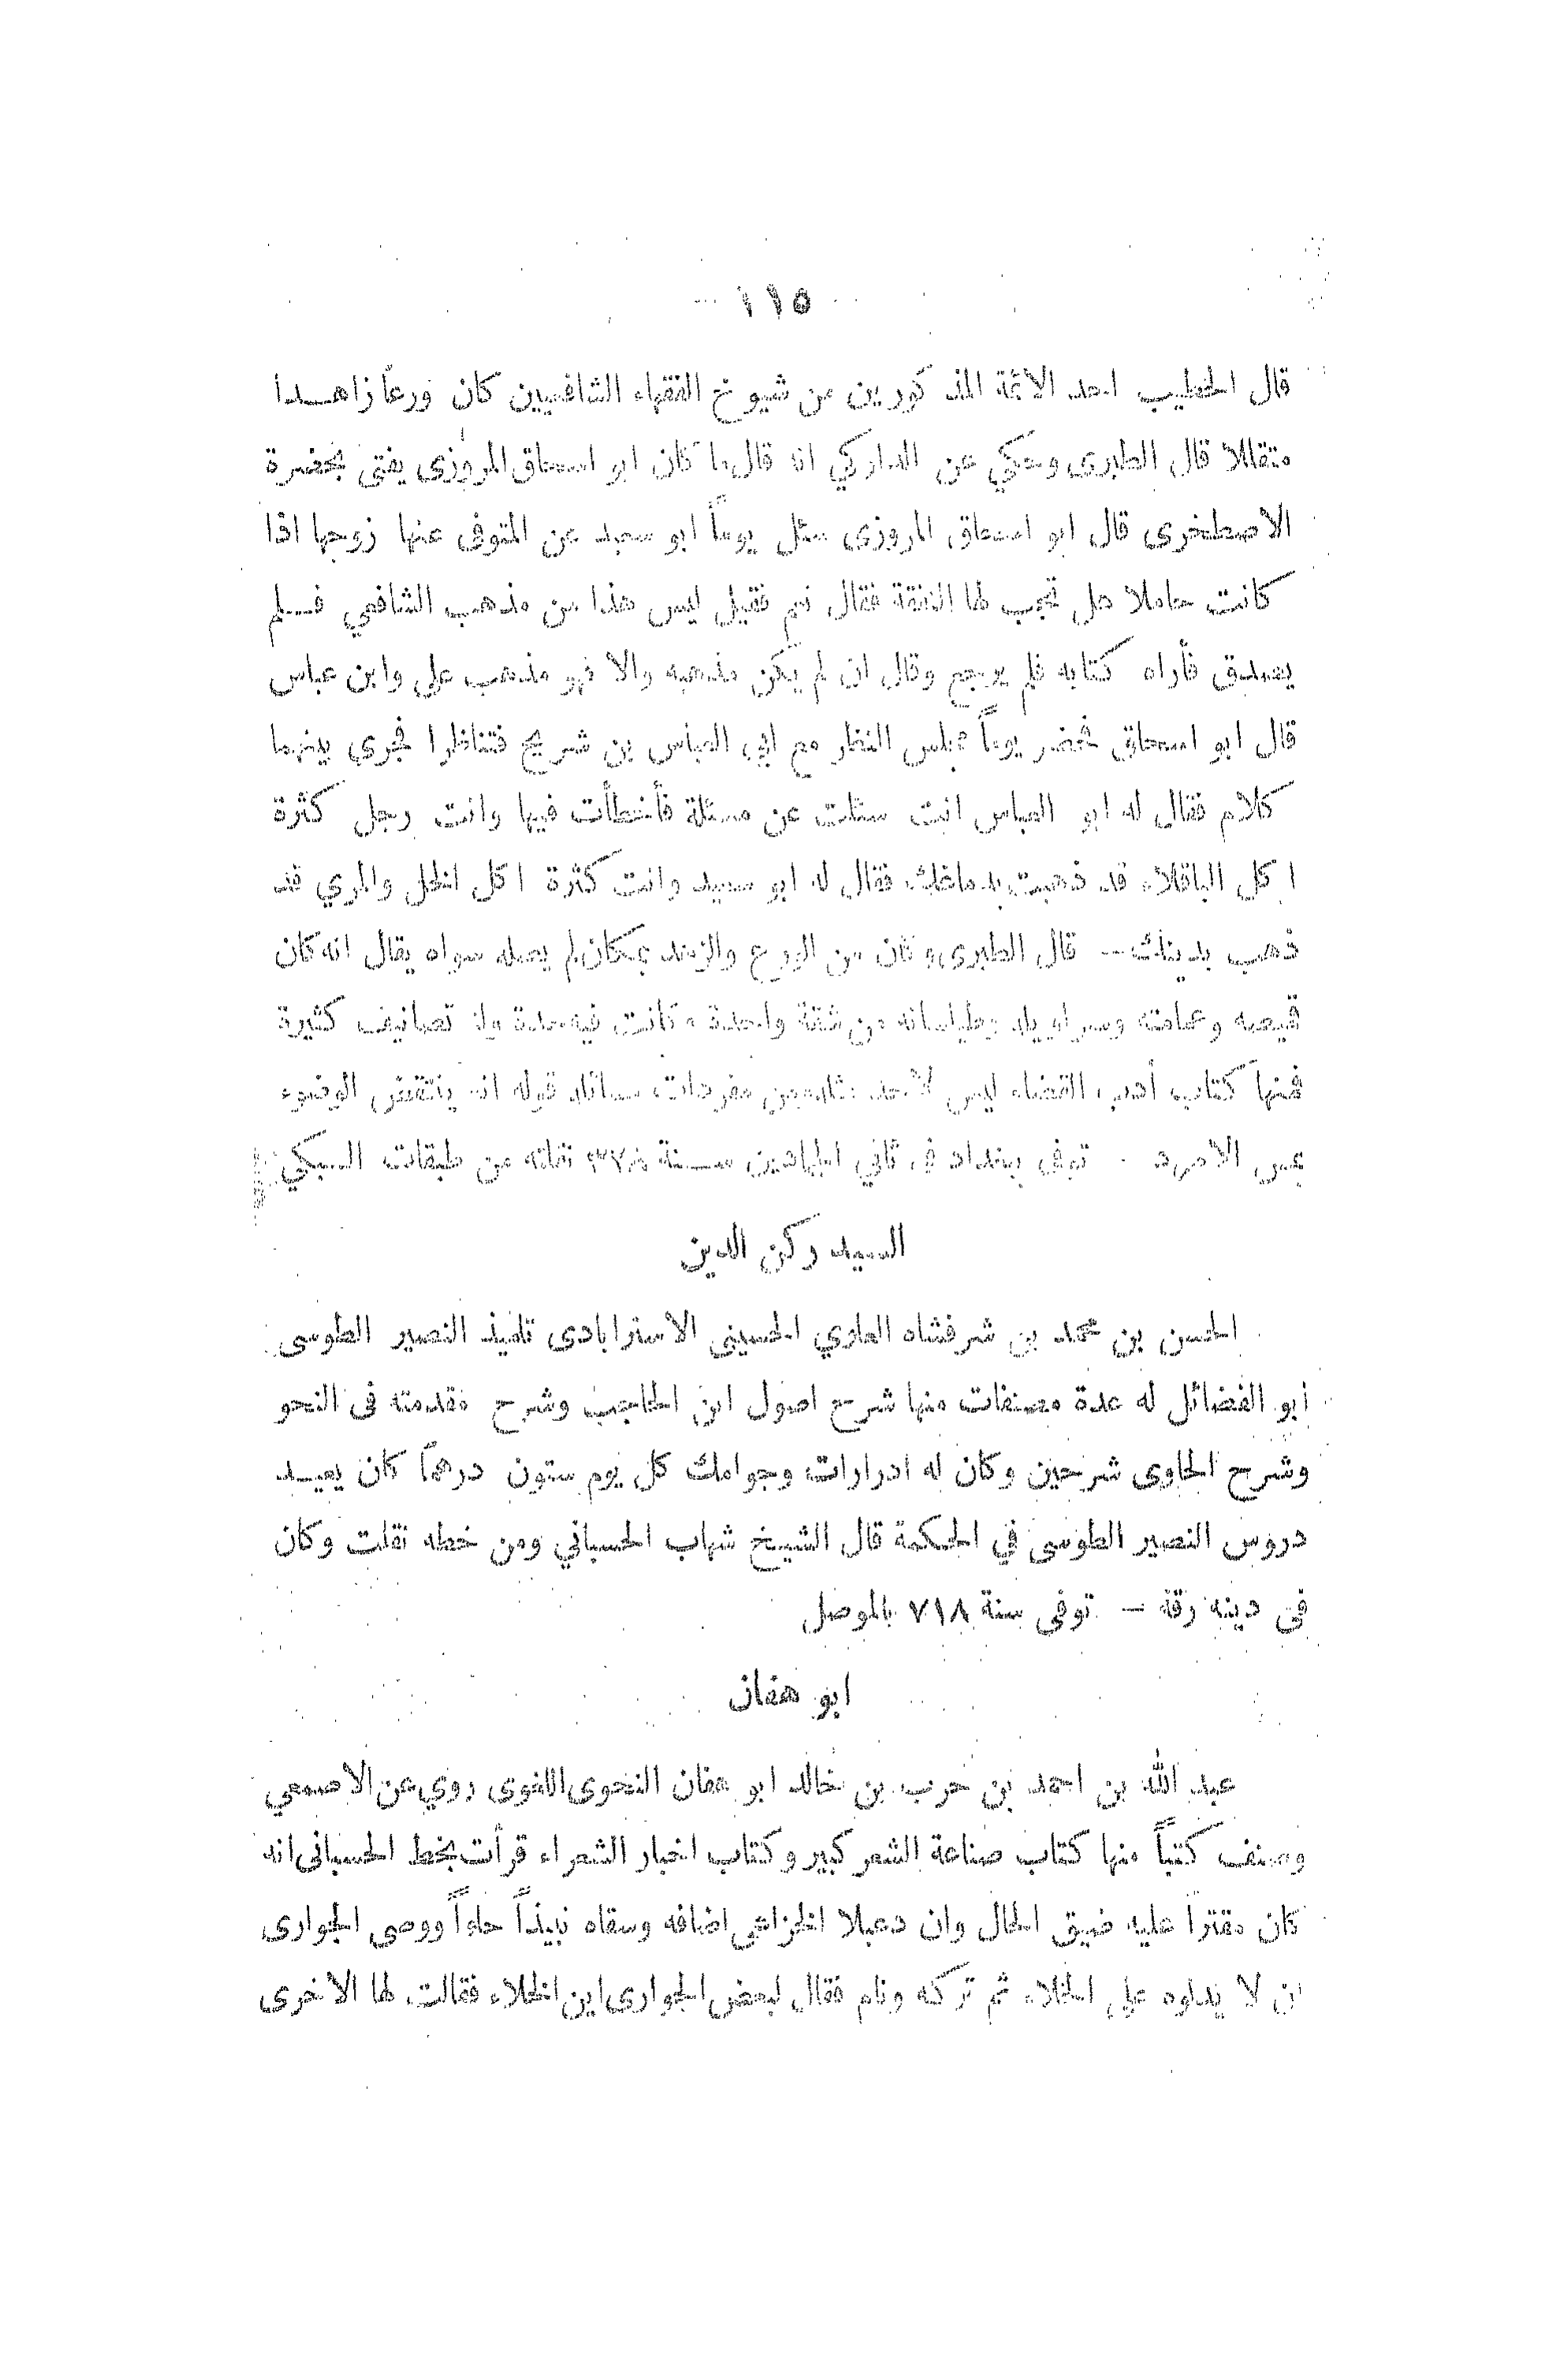 ١١٥
قال الخطيب احد الائمة المذكورين من شيوخ الفقهاء الشافعيين كان ورعاً زاهدا
متقللا قال الطبرى وحكي عن الداركي انه قال ما كان ابو اسحاق المروزى يفتى بحضرة
الاصطخرى قال ابو اسحاق المروزى سئل يوماً ابو سعيد عن المتوفى عنها زوجها اذا
كانت حاملا هل تجب لها النفقة فقال نعم فقيل ليس هذا من مذهب الشافعي فلم
يصدق فأراه كتابه فلم يرجع وقال ان لم يكن مذهبه والا فهو مذهب علي وابن عباس
قال ابو اسحاق فحضر يوماً مجلس النظر مع ابي العباس بن شريح فتناظرا فجرى بينهما
كلام فقال له ابو العباس انت سئلت عن مسئلة فأخطأت فيها وانت رجل كثرة
اكل الباقلاء قد ذهبت بدماغك فقال له ابو سعيد وانت كثرة اكل الخل والمري قد
ذهب بدينك — قال الطبرى وكان من الورع والزهد بمكان لم يصله سواه يقال انه كان
قميصه وعمامته وسراويله وطيلسانه من شقة واحدة وكانت فيه حدة وله تصانيف كثيرة
فمنها كتاب أدب القضاء ليس لأحد مثله من مفردات مسائله قوله انه ينتقض الوضوء
بمس الامرد . توفى ببغداد فى ثاني الجمادين سنة ٣٢٨ نقلته من طبقات السبكي
السيد ركن الدين
الحسن بن محمد بن شرفشاه العلوي الحسينى الاسترابادى تلميذ النصير الطوسى
ابو الفضائل له عدة مصنفات منها شرح اصول ابن الحاجب وشرح مقدمته فى النحو
وشرح الحاوى شرحين وكان له ادرارات وجوامك كل يوم ستون درهماً كان يعيد
دروس النصير الطوسى في الحكمة قال الشيخ شهاب الحسباني ومن خطه نقلت وكان
فى دينه رقة — توفى سنة ٧١٨ بالموصل
ابو هفان
عبد الله بن احمد بن حرب بن خالد ابو هفان النحوى اللغوى روي عن الاصمعي
وصنف كتباً منها كتاب صناعة الشعر كبير وكتاب اخبار الشعراء قرأت بخط الحسبانى انه
كان مقتراً عليه ضيق الحال وان دعبلا الخزاعى اضافه وسقاه نبيذاً حلواً ووصى الجوارى
ان لا يدلوه على الخلاء ثم تركه ونام فقال لبعض الجوارى اين الخلاء فقالت لها الاخرى